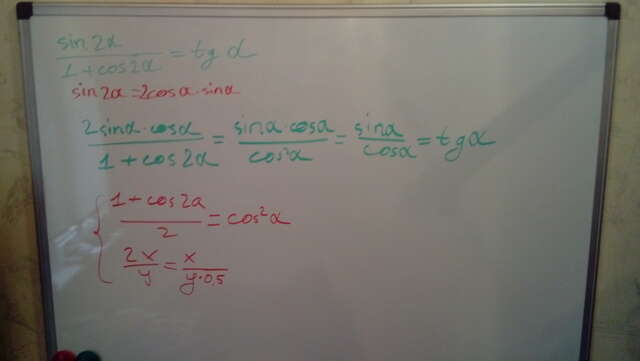 sin2α/(1+cos2α) = tg α
sin2α=2cosα·sinα
2sinα·cosα/(1+cos2α) = sinα·cosα/cos²α = sinα/cosα = tgα
{ (1+cos2α)/2 = cos²α
2x/y = x/(y·0,5)